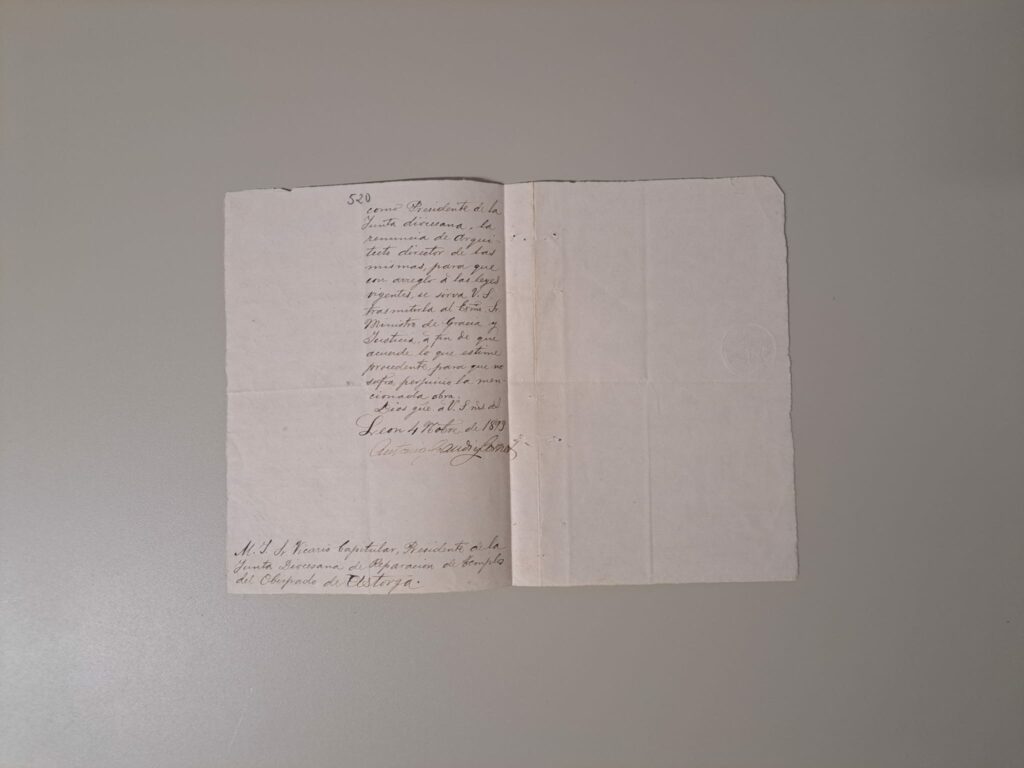 520
como Presidente de la
Junta diocesana, la
renuncia de Arqui-
tecto director de las
mismas, para que
con arreglo á las leyes
vigentes, se sirva V. S.
trasmitirla al Exmo Sr.
Ministro de Gracia y
Justicia, a fin de que
acuerde lo que estime
procedente, para que no
sufra perjuicio la men-
cionada obra.
Dios gue á V. S. ms as
Leon 4 Nobre de 1893
Antonio Gaudi y Cornet
M. I. Sr Vicario Capitular, Presidente de la
Junta Diocesana de Reparacion de Templos
del Obispado de Astorga.